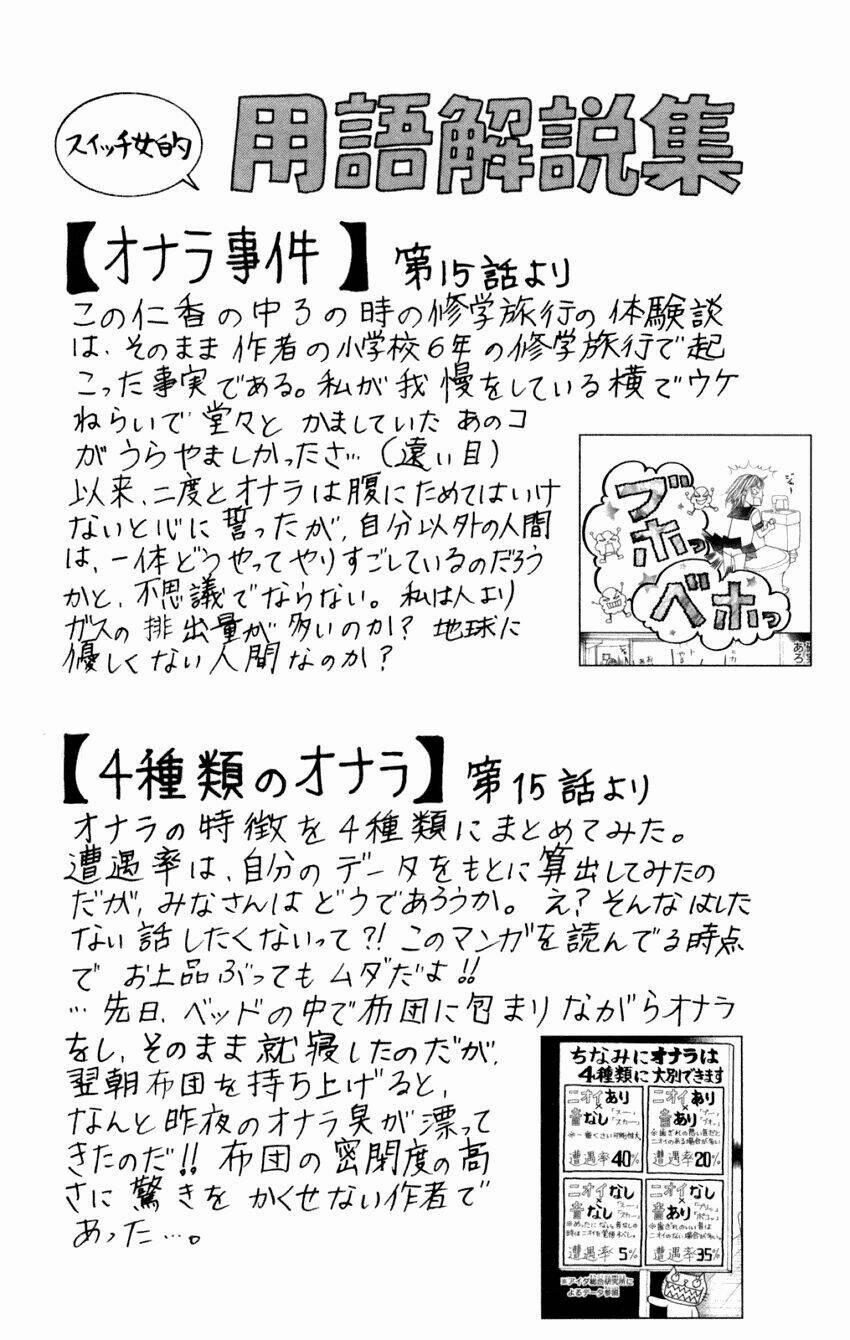 スイッチ女的
用語解説集
【オナラ事件】 第15話より
この仁香の中3の時の修学旅行の体験談
は、そのまま作者の小学校6年の修学旅行で起
こった事実である。私が我慢をしている横でウケ
ねらいで堂々とかましていたあのコ
がうらやましかったさ…(遠い目)
以来、二度とオナラは腹にためてはいけ
ないと心に誓ったが、自分以外の人間
は、一体どうやってやりすごしているのだろう
かと、不思議でならない。私は人より
ガスの排出量が多いのか?地球に
優しくない人間なのか?
ブホッ
ベホッ
【4種類のオナラ】 第15話より
オナラの特徴を4種類にまとめてみた。
遭遇率は、自分のデータをもとに算出してみたの
だが、みなさんはどうであろうか。え?そんなはした
ない話したくないって?!このマンガを読んでる時点
でお上品ぶってもムダだよ!!
…先日、ベッドの中で布団に包まりながらオナラ
をし、そのまま就寝したのだが、
翌朝布団を持ち上げると、
なんと昨夜のオナラ臭が漂って
きたのだ!!布団の密閉度の高
さに驚きをかくせない作者で
あった…。
ちなみにオナラは
4種類に大別できます
ニオイあり
×
音なし「スー」「スカー」
※一番くさい可能性大
遭遇率40%
ニオイあり
×
音あり「ブー」「ブオッ」
※歯ぎれの悪い音だと
ニオイのある場合が多い
遭遇率20%
ニオイなし
×
音なし「スー」「スカー」
遭遇率5%
ニオイなし
×
音あり
※歯ぎれのいい音は
ニオイのない場合が多い
遭遇率35%
※アイダ総合研究所に
よるデータ参照